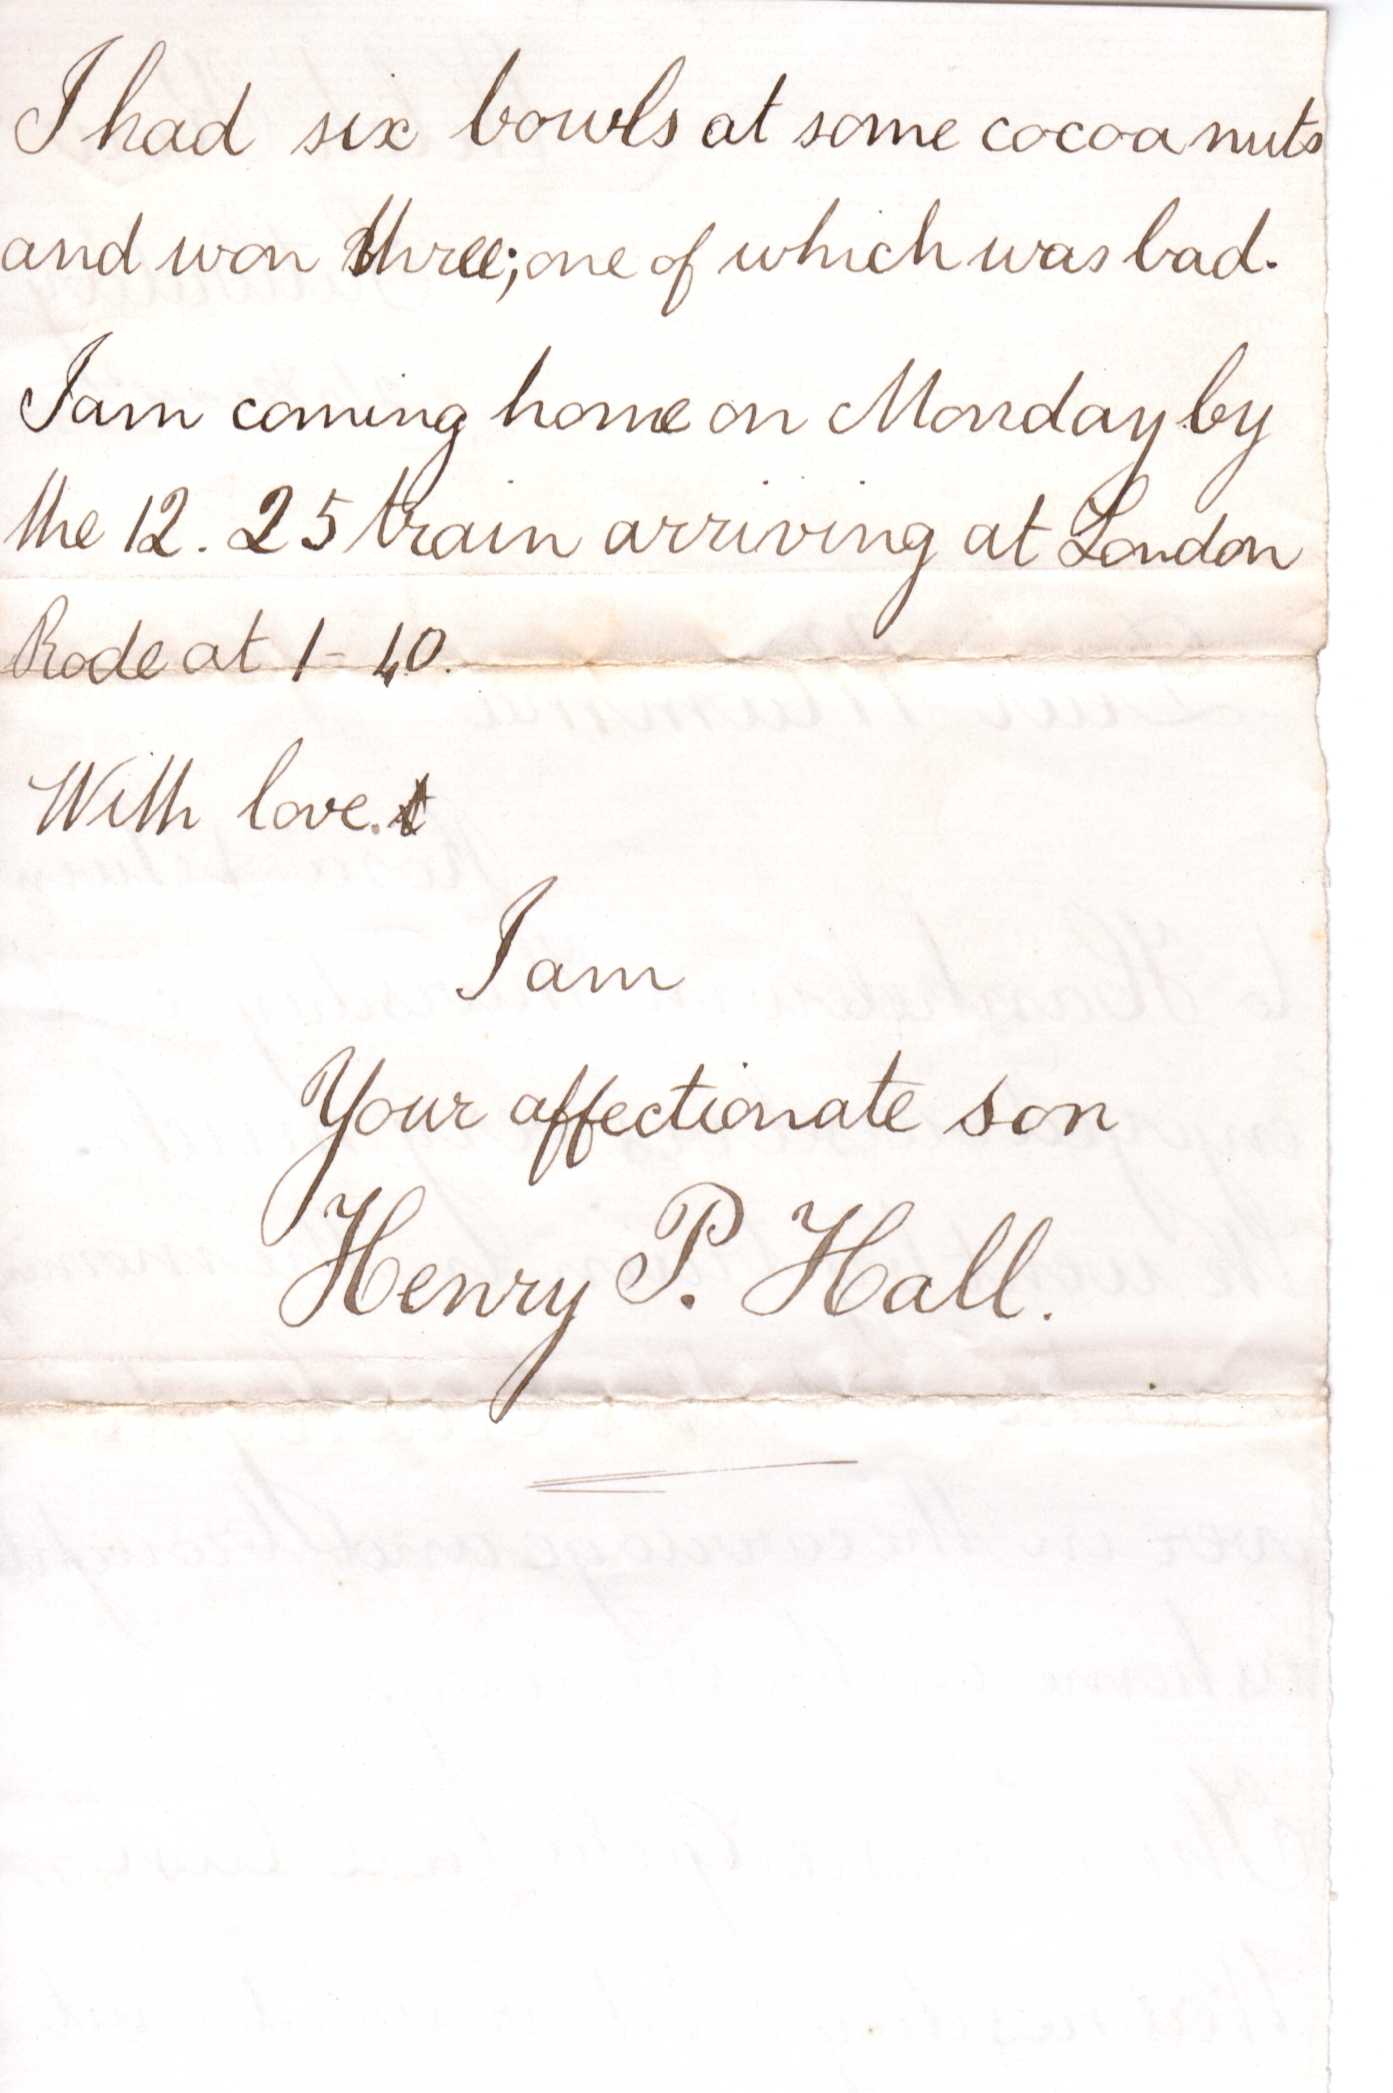 I had six bowls at some cocoa nuts
and won three; one of which was bad.
I am coming home on Monday by
the 12. 25 train arriving at London
Rode at 1 - 40.
With love.
I am
Your affectionate son
Henry P. Hall.